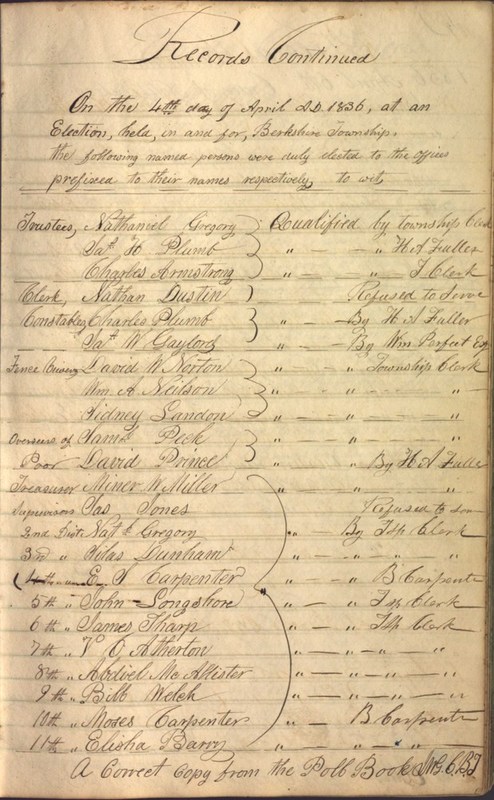 Records Continued
On the 4th day of April A.D. 1836, at an
Election, held, in and for, Berkshire Township,
the following named persons were duly elected to the offices
prefixed to their names respectively, to wit,
Trustees, Nathaniel Gregory } Qualified by township Clerk
Jas. H Plumb } " — " H A Fuller
Charles Armstrong } " — " T. Clerk
Clerk, Nathan Dustin } Refused to Serve
Constables Charles Plumb } " — By H A Fuller
Jas. W Gaylord } " — By Wm Perfect Esq
Fence Viewers David W Norton } " — " Township Clerk
Wm. A Neilson } " — " "
Sidney Landon } " — " "
Overseers of Saml. Peck } " — " "
Poor David Prince } " — " By H A Fuller
Treasurer Miner W Miller " — " "
Supervisors Jas Jones Refused to serve
2nd Distr. Natl. Gregory " By Tsp Clerk
3rd " Silas Dunham " — " " "
4th E. S Carpenter " — " B Carpenter
5th " John Longshore " — " Tsp Clerk
6th " James Tharp " — " Tsp Clerk
7th " V O Atherton " — " — "
8th " Abdiel Mc Allister " — " — " — "
9th " Bibb Welch " — " — " — "
10th " Moses Carpenter " — B Carpenter
11th " Elisha Barry " — " — " — "
A Correct Copy from the Poll Book